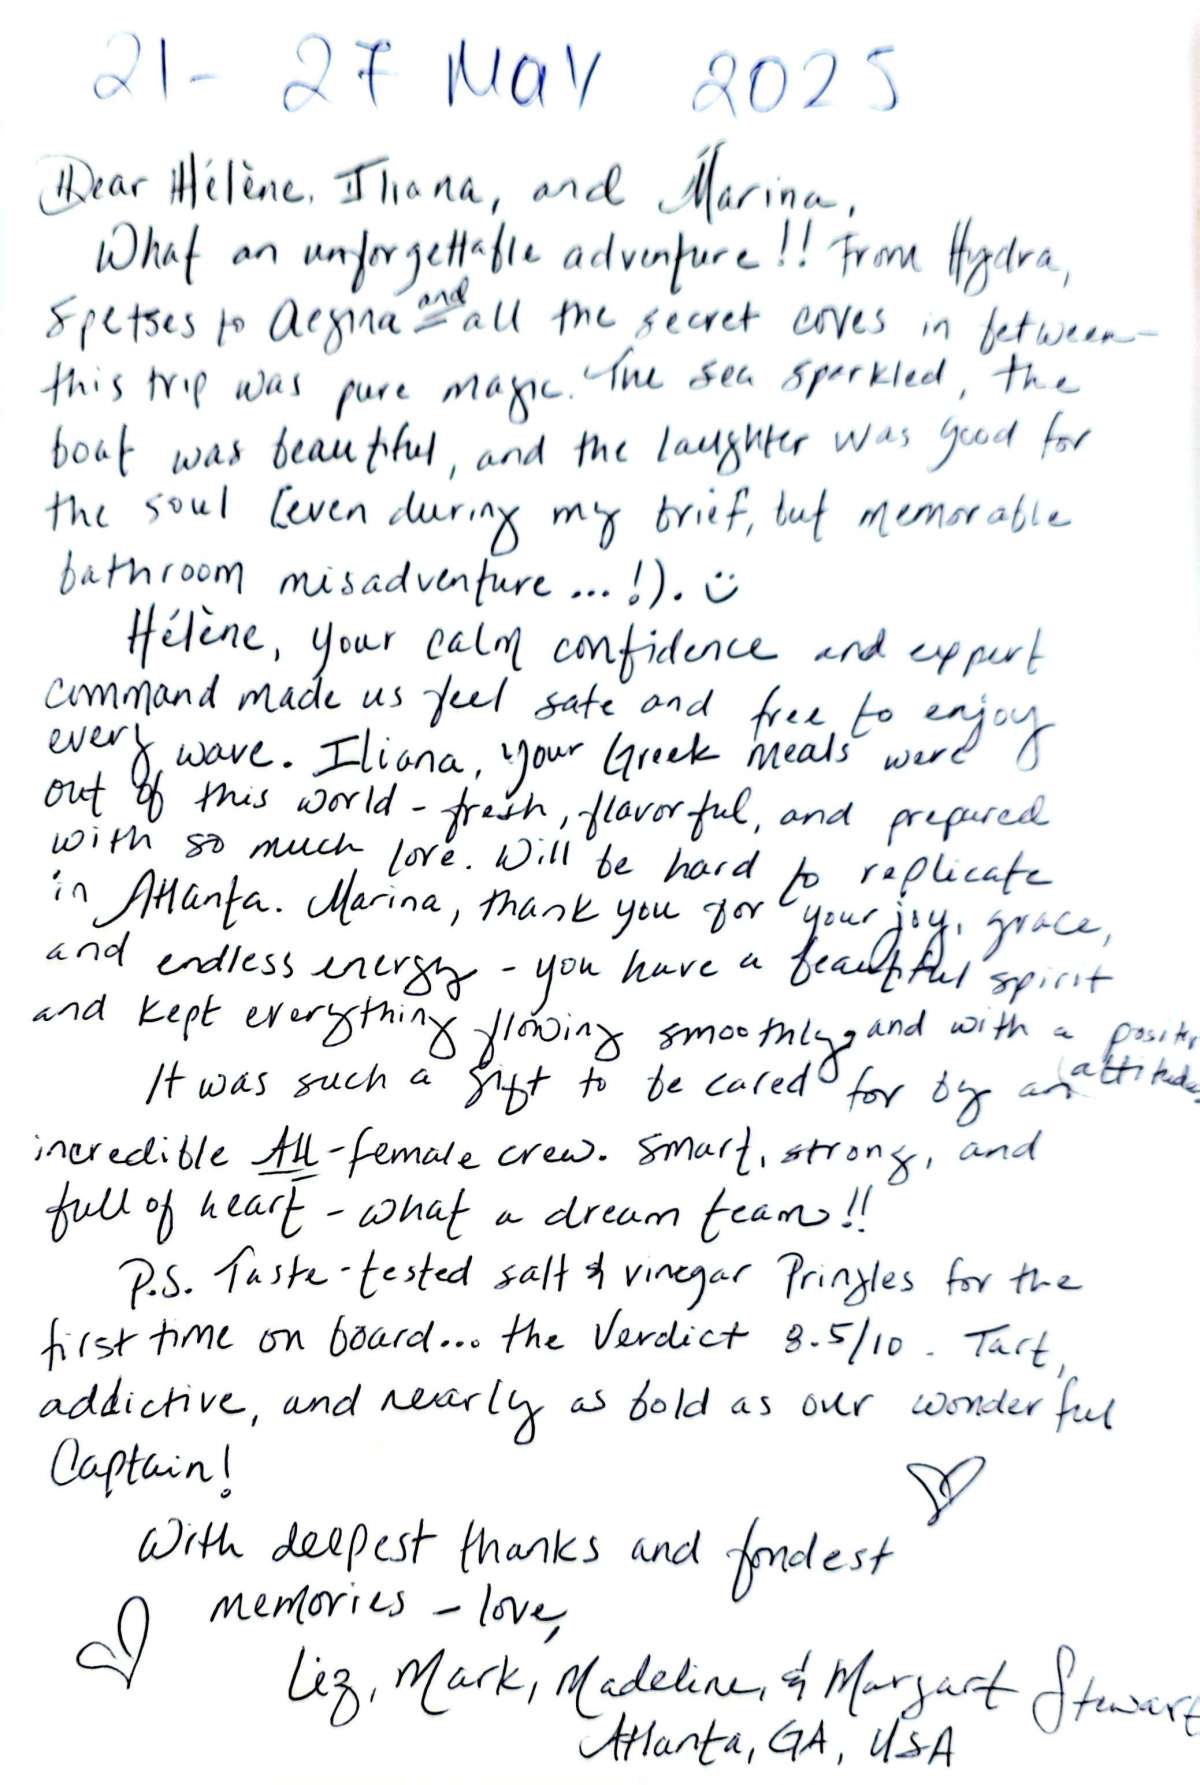 21 - 27 May 2025
Dear Hélène, Iliana, and Marina,
What an unforgettable adventure!! From Hydra,
Spetses to Aegina and all the secret coves in between -
this trip was pure magic. The sea sparkled, the
boat was beautiful, and the laughter was good for
the soul (even during my brief, but memorable
bathroom misadventure ...!). ☺
Hélène, your calm confidence and expert
command made us feel safe and free to enjoy
every wave. Iliana, your Greek meals were
out of this world - fresh, flavorful, and prepared
with so much love. Will be hard to replicate
in Atlanta. Marina, thank you for your joy, grace,
and endless energy - you have a beautiful spirit
and kept everything flowing smoothly, and with a positive
attitude.
It was such a gift to be cared for by an
incredible All-female crew. Smart, strong, and
full of heart - what a dream team!!
P.S. Taste-tested salt & vinegar Pringles for the
first time on board... the verdict 8.5/10. Tart,
addictive, and nearly as bold as our wonderful
Captain!
With deepest thanks and fondest
memories - love,
Liz, Mark, Madeline, & Margart Stewart
Atlanta, GA, USA